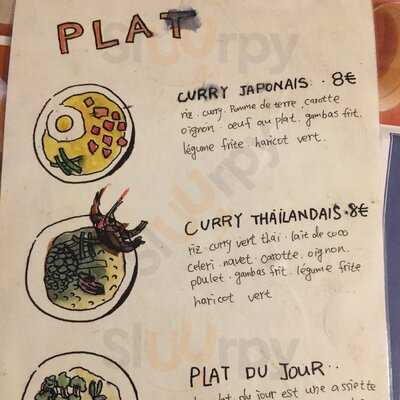 PLAT
CURRY JAPONAIS . 8€
riz . curry. Pomme de terre . carotte
oignon . oeuf au plat. gambas frit.
légume frite . haricot vert.
CURRY THAÏLANDAIS . 8€
riz . curry vert thaï . lait de coco
celeri . navet . carotte . oignon.
poulet . gambas frit. légume frite
haricot vert
PLAT DU JOUR . .
plat du jour est une assiette
sluurpy
sluurpy